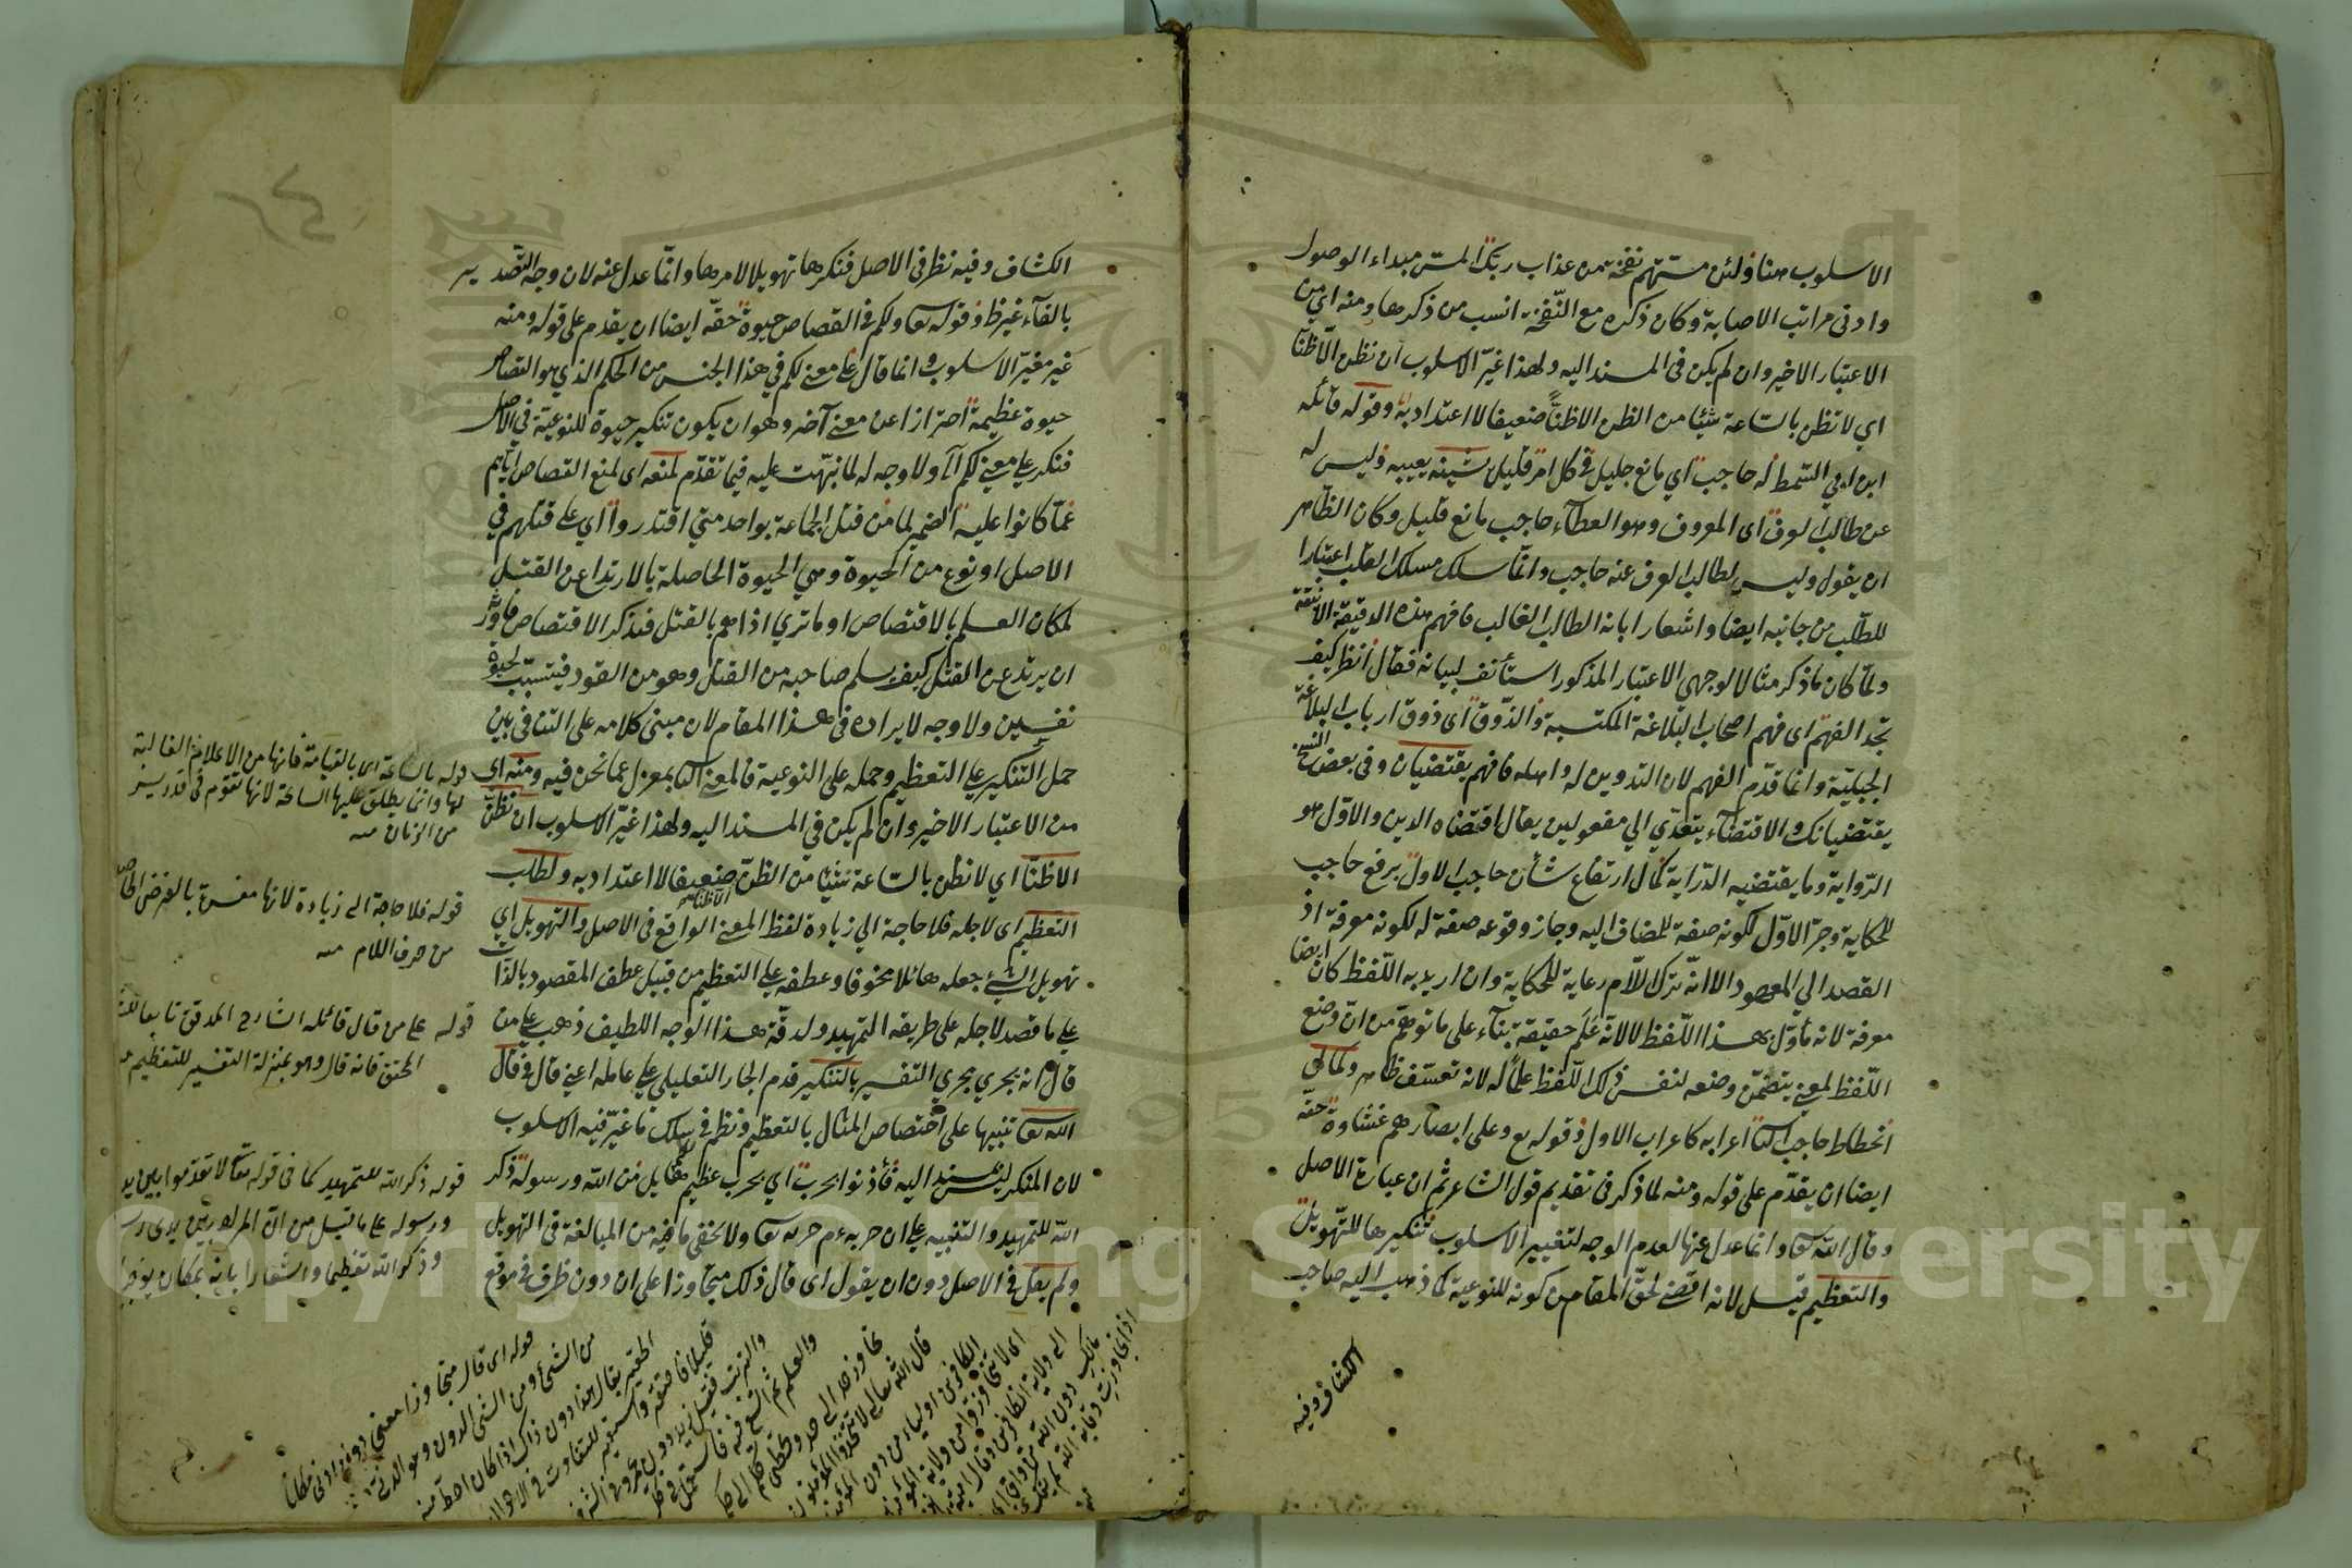 الاسلوب هنا ولئن مستهم نفحة من عذاب ربك المس مبداء الوصول
وادنى مراتب الاصابة وكان ذكره مع النفحة انسب من ذكرها ومنه اي من
الاعتبار الاخير وان لم يكن في المسند اليه ولهذا غير الاسلوب ان نظن الا ظنا
اي لا نظن بالساعة شيئا من الظن الا ظنا ضعيفا لا اعتداد به وقوله قائله
ابن ابي السمط له حاجب اي مانع جليل في كل امر قليل يشينه يعيبه وليس له
عن طالب العرف اي المعروف وهو العطاء حاجب مانع قليل وكان الظاهر
ان يقول وليس لطالب العرف عنه حاجب وانما سلك مسلك القلب اعتبارا
للطلب من جانبه ايضا واشعارا بانه الطالب الغالب فافهم هذه الدقيقة الانيقة
ولما كان ما ذكر مثالا لوجهي الاعتبار المذكور استأنف لبيانه فقال انظر كيف
تجد الفهم اي فهم اصحاب البلاغة المكتسبة والذوق اي ذوق ارباب البلاغة
الجبلية وانما قدم الفهم لان التدوين له واصله فافهم يقتضيان وفي بعض النسخ
يقتضيانك والاقتضاء يتعدي الي مفعولين يقال اقتضاه الدين والاول هو
الرواية وما يقتضيه الدراية كمال ارتفاع شأن حاجب الاول برفع حاجب
للحكاية وجر الاول لكونه صفة للمضاف اليه وجاز وقوعه صفة له لكونه معرفة اذ
القصد الي المعهود الا انه ترك اللام رعاية للحكاية وان اريد به اللفظ كان ايضا
معرفة لانه مأول بهذا اللفظ لا لانه علم حقيقة بناء على ما توهم من ان وضع
اللفظ لمعني يتضمن وضعه لنفس ذلك اللفظ علما له لانه تعسف ظاهر وكمال
انحطاط حاجب الثاني اعرابه كاعراب الاول وقوله تع وعلى ابصارهم غشاوة حقه
ايضا ان يقدم على قوله ومنه لما ذكر في تقديم قول الشاعر ثم ان عبارة الاصل
وقال الله تعا وانما عدل عنها لعدم الوجه لتغيير الاسلوب تنكيرها للتهويل
والتعظيم قيل لانه اقضي لحق المقام من كونه للنوعية كما ذهب اليه صاحب
الكشاف وفيه
الكشاف وفيه نظر في الاصل فنكرها تهويلا لامرها وانما عدل عنه لان وجه التصدير
بالفاء غير ظ وقوله تعا ولكم في القصاص حيوة حقه ايضا ان يقدم على قوله ومنه
غير مغير الاسلوب وانما قال علي معني لكم في هذا الجنس من الحكم الذي هو القصاص
حيوة عظيمة احترازا عن معني آخر وهو ان يكون تنكير حيوة للنوعية في الاصل
فنكر علي معني لكم الخ ولا وجه له لما نبهت عليه فيما تقدم لمنعه اي لمنع القصاص اياهم
عما كانوا عليه الضمير لما من قتل الجماعة بواحد متي اقتدروا اي على قتلهم في
الاصل او نوع من الحيوة وهي الحيوة الحاصلة بالارتداع عن القتل
لمكان العلم بالاقتصاص او ما تري اذا هم بالقتل فتذكر الاقتصاص فاورثه
ان يرتدع عن القتل كيف يسلم صاحبه من القتل وهو من القود فيتسبب لحيوة
نفسين ولا وجه لايراده في هذا المقام لان مبنى كلامه على التنافي بين
حمل التنكير علي التعظيم وحمله على النوعية فالمعني الثاني بمعزل عما نحن فيه ومنه اي
من الاعتبار الاخير وان لم يكن في المسند اليه ولهذا غير الاسلوب ان نظن
الا ظنا اي لا نظن بالساعة شيئا من الظن الا ظنا ضعيفا لا اعتداد به ولطلب
التعظيم اي لاجله فلا حاجة الي زيادة لفظ المعني الواقع في الاصل والتهويل اي
تهويل الشئ جعله هائلا مخوفا وعطفه علي التعظيم من قبيل عطف المقصود بالذات
علي ما قصد لاجله على طريقه التمهيد ولدقة هذا الوجه اللطيف ذهب علي من
قال انه يجري مجري التفسير بالتنكير قدم الجار التعليلي علي عامله اعني قال في قال
الله تعا تنبيها على اختصاص المثال بالتعظيم ونظم في سلك ما غير فيه الاسلوب
لان المنكر ليس بمسند اليه فأذنوا بحرب اي بحرب عظيم من الله ورسوله ذكر
الله للتمهيد والتنبيه علي ان حربه م حربه تعا ولا يخفي ما فيه من المبالغة في التهويل
ولم يقل في الاصل دون ان يقول اي قال ذلك متجاوزا على ان دون ظرف في موقع
قوله بالساعة اي بالقيامة فانها من الاعلام الغالبة
لها وانما يطلق عليها الساعة لانها تقوم في قدر يسير
من الزمان منه
قوله فلا حاجة الي زيادة لانها مفسرة بالغرض الحاصل
من حرف اللام منه
قوله علي من قال قائله الشارح المدقق تابعا للشارح
المحقق فانه قال وهو بمنزلة التفسير للتعظيم منه
قوله ذكر الله للتمهيد كما في قوله تعالي لا تقدموا بين يدي
ورسوله علي ما قيل من ان المراد بين يدي رسول
وذكر الله تعظيما واشعارا بانه بمكان يوجب
قوله اي قال متجاوزا معني دون ادني مكان
من الشئ ومن الشئ الدون وهو الدني
الحقير يقال هذا دون ذاك اذا كان احط منه